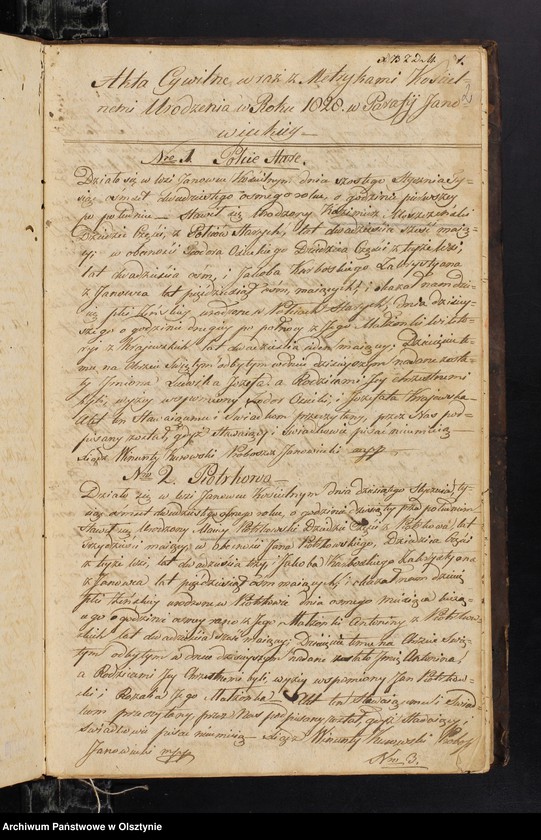 Akta Cywilne wraz z Metrykami Kościel-
nemi Urodzenia w Roku 1828. w Parafij Jano-
wieckiey
2
Nro 1. Potrie Stare.
Działo się w wsi Janowcu Kościelnym dnia szóstego Stycznia ty-
siąc ośmset dwudziestego osmego roku, o godzinie pierwszy
po południu — Stawił się Urodzony Kazimierz
Dziedzic Części, z Starych, lat dwadzieścia sześć mają-
cy, w obecności Dziedzica Części z teyże wsi
lat dwadzieścia ośm, i Jakoba Karboskiego Zakrystyana
z Janowca lat pięćdziesiąt ośm, maiących, i okazał nam dzie-
cię płci żeńskiey urodzone w Starych, dnia dzisiey-
szego o godzinie drugiey po północy z Jego Małżonki Wikto-
ryi z Krajewskich lat dwadzieścia maiący, Dziecięciu te-
mu na Chrzcie Świętym odbytym w dniu dzisiejszym nadane zosta-
ły Imiona Józefa, a Rodzicami Jey chrzestnemi
byli, wyżey wspomniony i Józefata Krajewska
Akt ten Stawaiącemu i Świadkom przeczytany, przez Nas pod-
pisany został, gdyż Stawaiący i Świadkowie pisać nieumieią —
Xiądz Wincenty Kurowski Proboszcz Janowiecki mpp
Nro 2. Piotrkowo
Działo się w wsi Janowcu Kościelnym dnia dziesiątego Stycznia ty-
siąc ośmset dwudziestego osmego roku, o godzinie dziewiąty przed południem
Stawił się Urodzony Piotrkowski Dziedzic Części z Piotrkowa, lat
trzydzieści maiący, w obecności Jana Piotrkowskiego, Dziedzica Części
z teyże wsi, lat dwadzieścia trzy, i Jakoba Karboskiego Zakrystyana
z Janowca lat pięćdziesiąt ośm maiących, i okazał nam dziecię
płci żeńskiey urodzone w Piotrkowie dnia osmego miesiąca bieżą-
cego o godzinie osmey rano z Jego Małżonki Antoniny z Piotrkow-
skich lat dwadzieścia sześć maiący; Dziecięciu temu na Chrzcie Świę-
tym odbytym w dniu dzisiejszym nadane zostało Imie Antonina,
a Rodzicami Jey Chrzestnemi byli wyżey wspomniony Jan Piotrkow-
ski i Rozalia Jego Małżonka. Akt ten Stawaiącemu i Świad-
kom przeczytany, przez Nas podpisany został, gdyż Stawaiący i
Świadkowie pisać nieumieią — Xiądz Wincenty Kurowski Probosz
Janowiecki mpp
Nro 3.
Archiwum Państwowe w Olsztynie